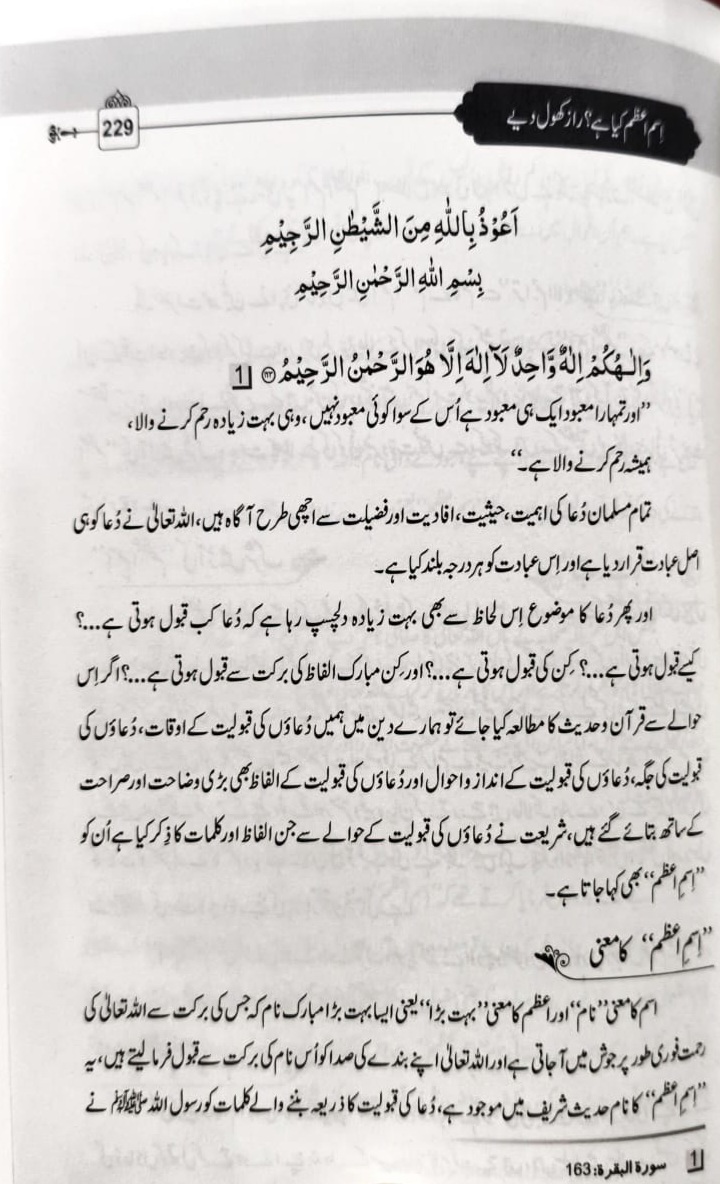 اِسم اعظم کیا ہے؟ راز کھول دیے
229
اَعُوْذُ بِاللّٰهِ مِنَ الشَّيْطٰنِ الرَّجِيْمِ
بِسْمِ اللّٰهِ الرَّحْمٰنِ الرَّحِيْمِ
وَاِلٰـهُكُمْ اِلٰهٌ وَّاحِدٌ لَآ اِلٰهَ اِلَّا هُوَ الرَّحْمٰنُ الرَّحِيْمُ ﴿۱۶۳﴾ 1
”اور تمہارا معبود ایک ہی معبود ہے اُس کے سوا کوئی معبود نہیں، وہی بہت زیادہ رحم کرنے والا،
ہمیشہ رحم کرنے والا ہے۔“
تمام مسلمان دُعا کی اہمیت، حیثیت، افادیت اور فضیلت سے اچھی طرح آگاہ ہیں، اللہ تعالیٰ نے دُعا کو ہی
اصل عبادت قرار دیا ہے اور اِس عبادت کو ہر درجہ بلند کیا ہے۔
اور پھر دُعا کا موضوع اِس لحاظ سے بھی بہت زیادہ دلچسپ رہا ہے کہ دُعا کب قبول ہوتی ہے...؟
کیسے قبول ہوتی ہے...؟ کِن کی قبول ہوتی ہے...؟ اور کِن مبارک الفاظ کی برکت سے قبول ہوتی ہے...؟ اگر اِس
حوالے سے قرآن وحدیث کا مطالعہ کیا جائے تو ہمارے دین میں ہمیں دُعاؤں کی قبولیت کے اوقات، دُعاؤں کی
قبولیت کی جگہ، دُعاؤں کی قبولیت کے انداز و احوال اور دُعاؤں کی قبولیت کے الفاظ بھی بڑی وضاحت اور صراحت
کے ساتھ بتائے گئے ہیں، شریعت نے دُعاؤں کی قبولیت کے حوالے سے جن الفاظ اور کلمات کا ذِکر کیا ہے اُن کو
”اِسمِ اعظم“ بھی کہا جاتا ہے۔
”اِسمِ اعظم“ کا معنی
اسم کا معنی ”نام“ اور اعظم کا معنی ”بہت بڑا“ یعنی ایسا بہت بڑا مبارک نام کہ جس کی برکت سے اللہ تعالیٰ کی
رحمت فوری طور پر جوش میں آ جاتی ہے اور اللہ تعالیٰ اپنے بندے کی صدا کو اُس نام کی برکت سے قبول فرمالیتے ہیں، یہ
”اِسمِ اعظم“ کا نام حدیث شریف میں موجود ہے، دُعا کی قبولیت کا ذریعہ بننے والے کلمات کو رسول اللہ ﷺ نے
1 سورۃ البقرۃ: 163